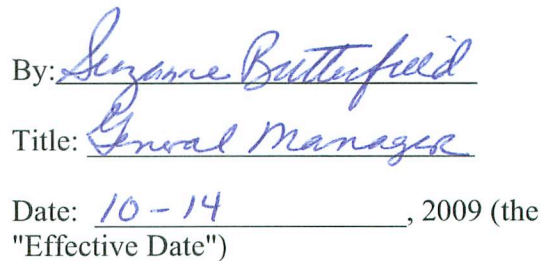 By: Suzanne Butterfield
Title: General Manager
Date: 10-14, 2009 (the
"Effective Date")